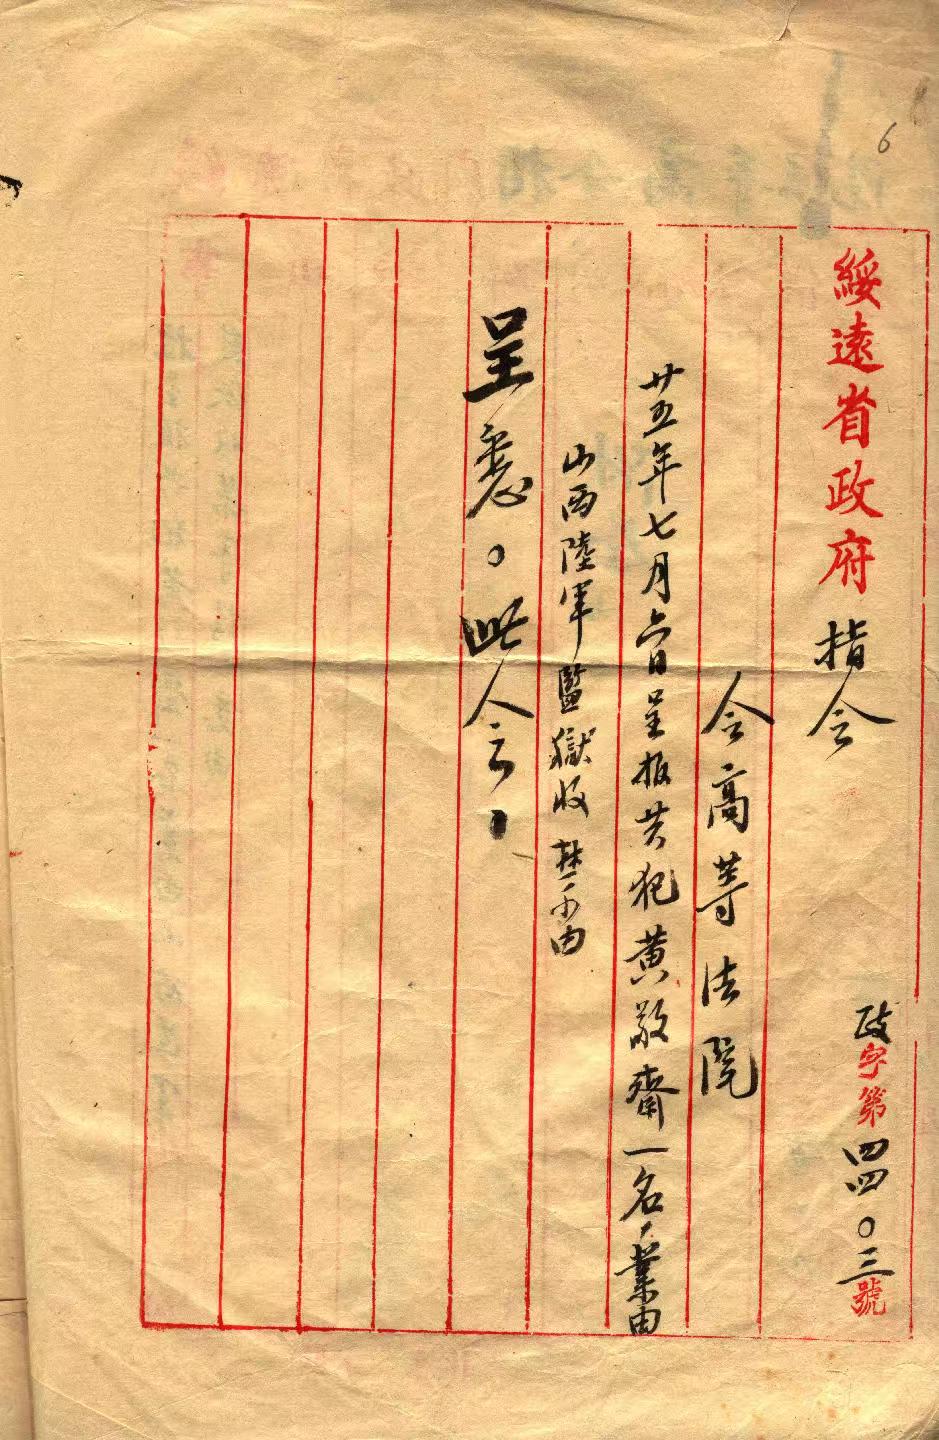 6
綏遠省政府指令
政字第四四〇三號
令高等法院
廿五年七月六日呈報共犯黄敬齋一名，業由
山西陸軍監獄收禁由
呈悉。此令。